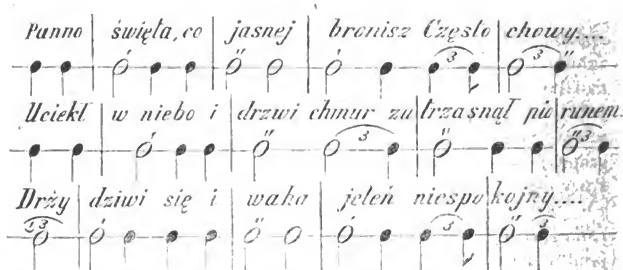 Panno święta, co jasnej bronisz Często chowy....
3 3
Uciekł w niebo i drzwi chmur za trzasnął pio runem.
3 3
Drży dziwi się i waha jeleń niespo kojny....
23 3 3